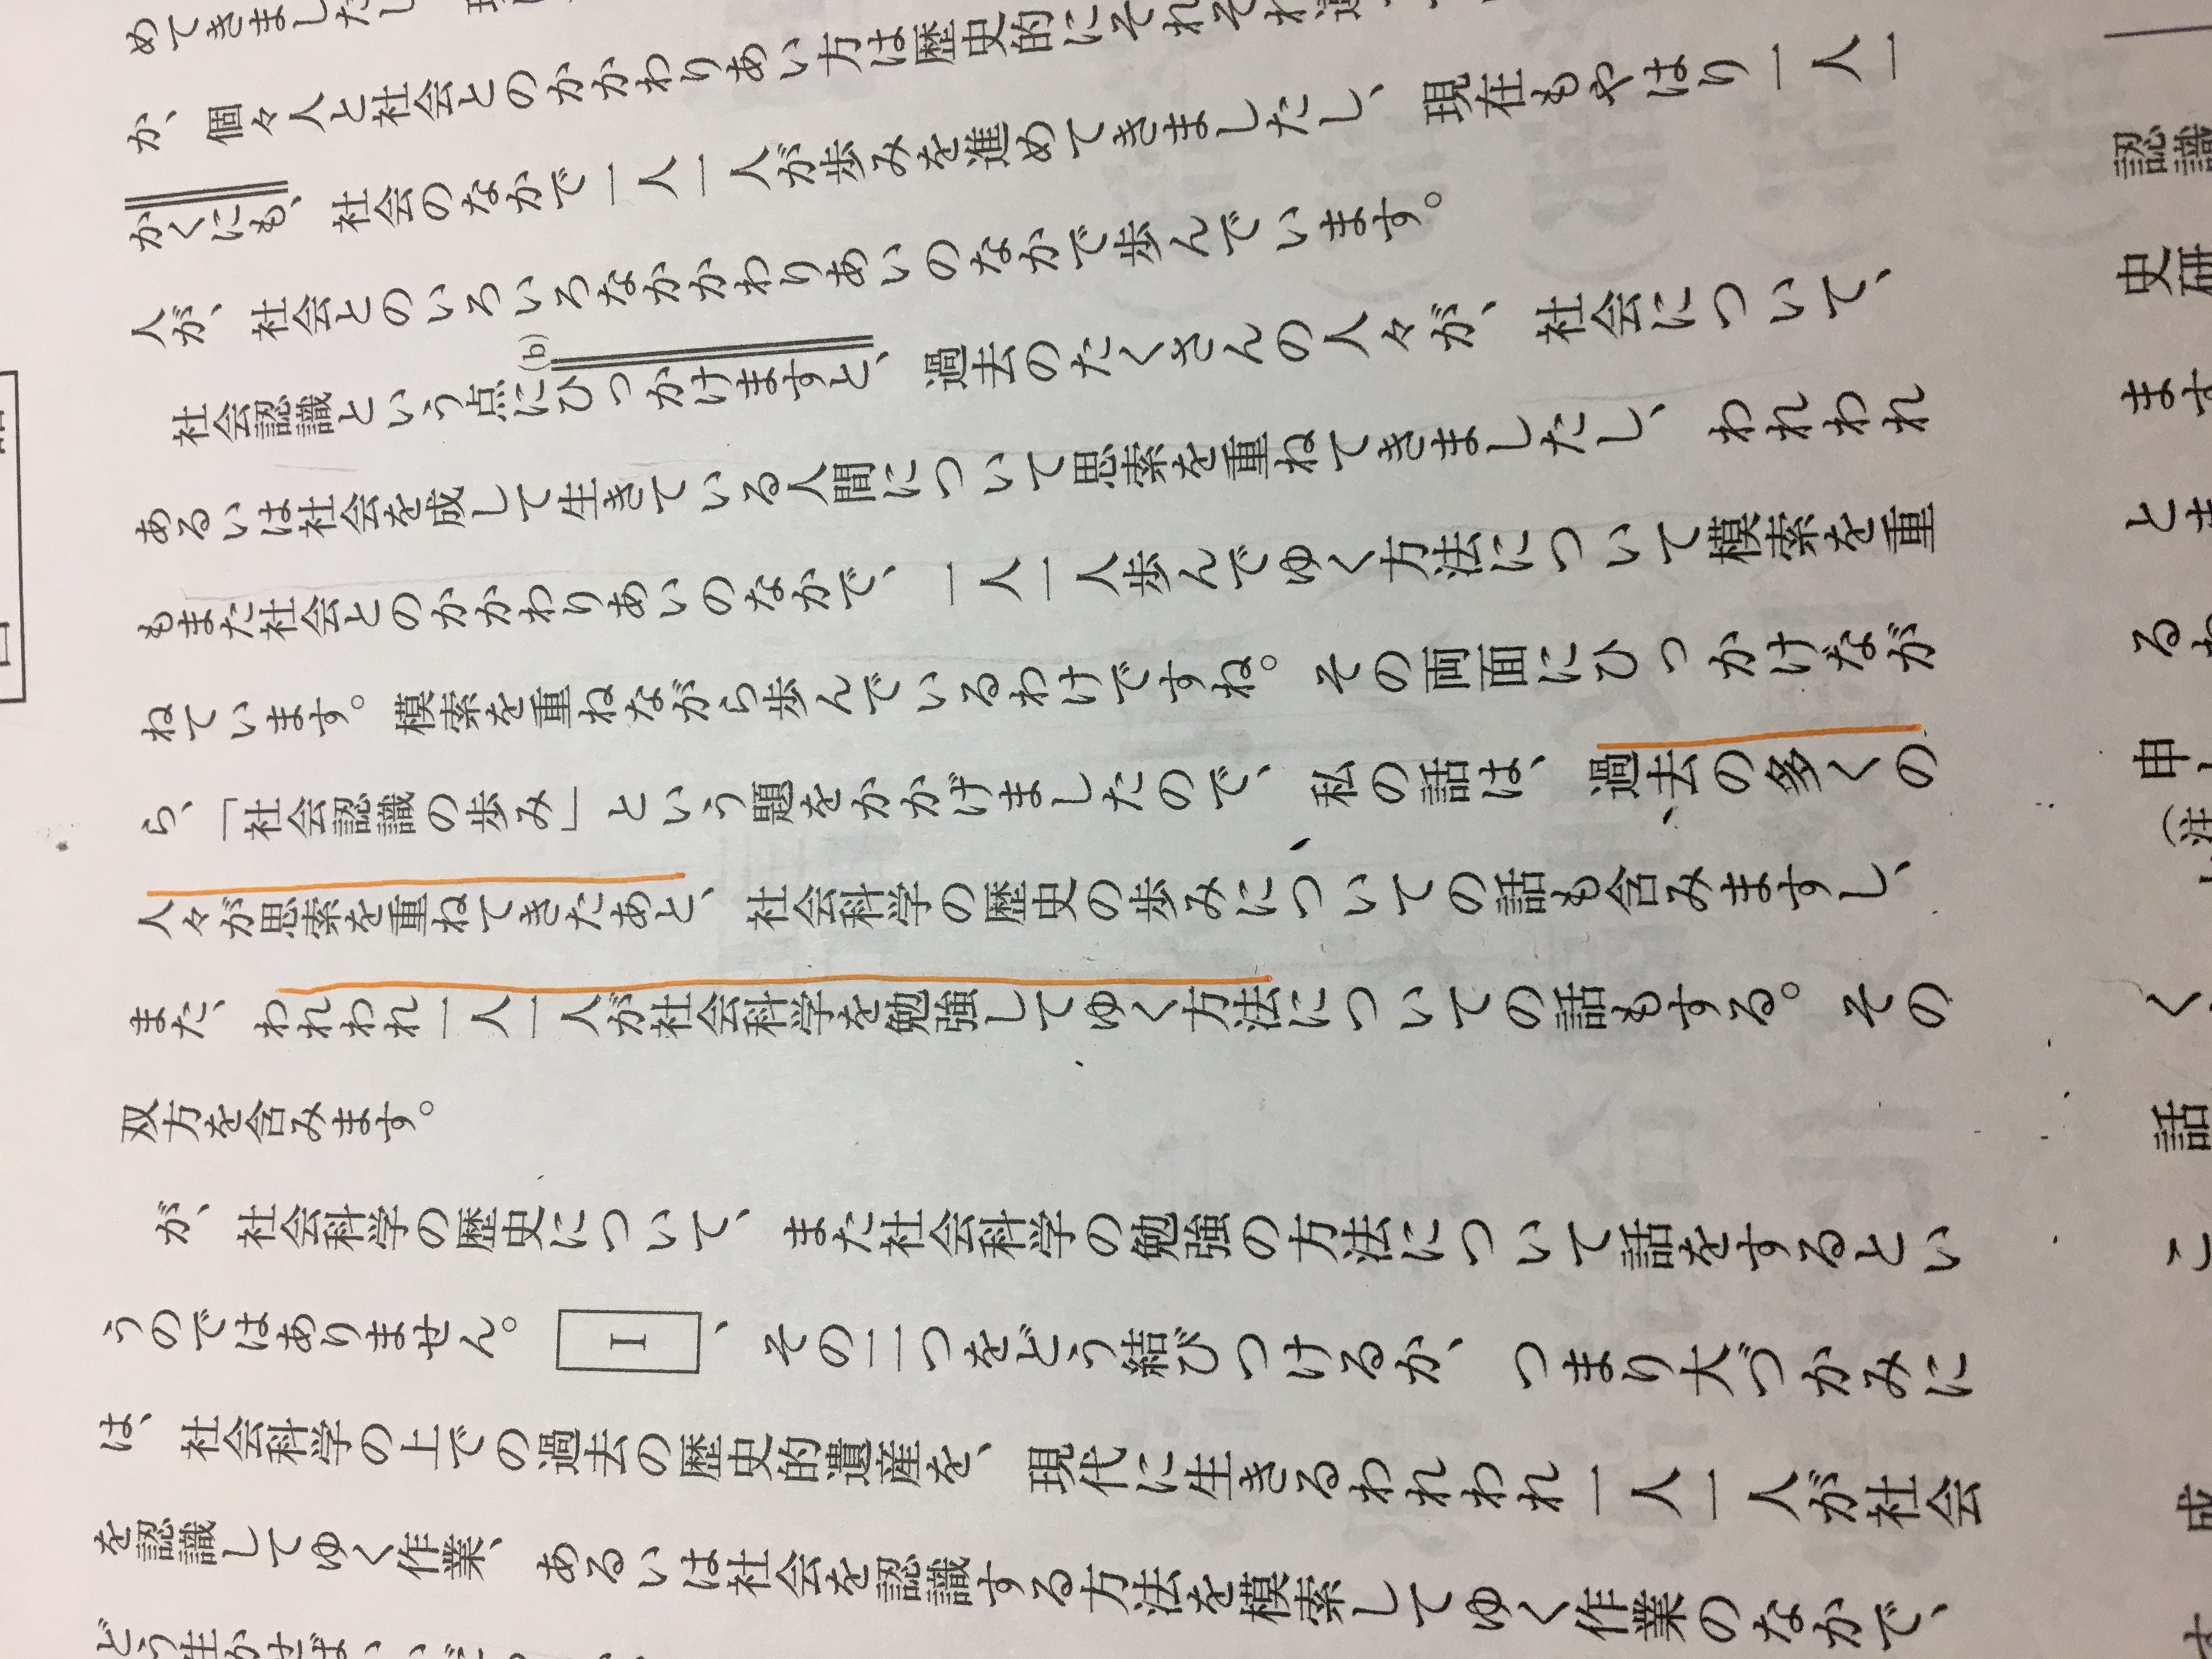 めてきましたし
か、個々人と社会とのかかわりあい方は歴史的にそれぞれ違
かくにも、社会のなかで一人一人が歩みを進めてきましたし、現在もやはり一人一
人が、社会とのいろいろなかかわりあいのなかで歩んでいます。
(b)
社会認識という点にひっかけますと、過去のたくさんの人々が、社会について、
あるいは社会を成して生きている人間について思索を重ねてきましたし、われわれ
もまた社会とのかかわりあいのなかで、一人一人歩んでゆく方法について模索を重
ねています。模索を重ねながら歩んでいるわけですね。その両面にひっかけなが
ら、「社会認識の歩み」という題をかかげましたので、私の話は、過去の多くの
人々が思索を重ねてきたあと、社会科学の歴史の歩みについての話も含みますし、
また、われわれ一人一人が社会科学を勉強してゆく方法についての話もする。その
双方を含みます。
が、社会科学の歴史について、また社会科学の勉強の方法について話をするとい
うのではありません。 I 、その二つをどう結びつけるか、つまり大づかみに
は、社会科学の上での過去の歴史的遺産を、現代に生きるわれわれ一人一人が社会
を認識してゆく作業、あるいは社会を認識する方法を模索してゆく作業のなかで、
どう生かせばいい
認識
史研
ます
とき
るわ
申し
(注
く、
話
こ
成